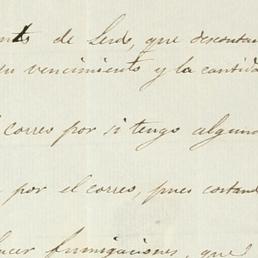 de Lerdo, que descontan
su vencimiento y la cantida
correo por si tengo alguno
por el correo, pues costand
hacer fumigaciones, que